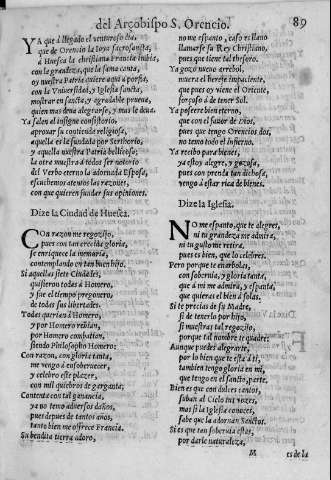 del Arçobispo S. Orencio. 89
YA que à llegado el venturoso dia,
que de Orencio la joya sacrosancta,
à Huesca la christiana Francia imbia,
con la grandeza, que la fama canta,
oy nuestra Patria quiere aqui à porfia,
con la Vniuersidad, y Iglesia sancta,
mostrar en sancta, y agradable prueua,
quien mas deue alegrarse, y mas le deua.
Ya salen al insigne consistorio,
aprouar su contienda religiosa,
aquella es la fundada por Serthorio,
y aquella nuestra Patria bellicosa,
la otra muestra à todos ser notorio
del Verbo eterno la adornada Esposa,
escuchemos atentos las razones,
con que quieren fundar sus opiniones.
Dize la Ciudad de Huesca.
COn razon me regozijo,
pues con tan crecida gloria,
se enriquece la memoria,
contemplando vn tan buen hijo.
Si aquellas siete Ciudades,
quisieron todas à Homero,
y fue el tiempo pregonero,
de todas sus libertades.
Todas querian à Homero,
y por Homero reñian,
por Homero combatian,
siendo Philosopho Homero:
Con razon, con gloria tanta,
me vengo à ensoberuecer,
y celebro este plazer,
con mil quiebros de garganta;
Contenta con tal ganancia,
ya no temo aduersos daños,
pues despues de tantos años,
tanto bien me ofrece Francia.
Su bendita tierra adoro,
no me espanto, que caso es llano
llamarse su Rey Christiano,
pues que tiene tal thesoro.
Ya gozo nueuo arrebol,
muera el herege impaciente,
que pues oy viene el Oriente,
forçoso à de tener Sol.
Ya poseere bien eterno,
que con el fauor de Dios,
pues que tengo Orencios dos,
no temo todo el Infierno.
Ya recibo para bienes,
ya estoy alegre, y gozosa,
pues con prenda tan dichosa,
vengo à estar rica de bienes.
Dize la Iglesia.
NO me espanto, que te alegres,
ni tu grandeza me admira,
ni tu gusto me retira,
pues es bien, que lo celebres.
Pero porque te enarbolas,
con soberuia, y gloria tanta,
que à mi me admira, y espanta,
que quieras el bien à solas.
Si te precias de su Madre,
si de tenerlo por hijo,
si muestras tal regozijo,
porque tal nombre te quadre:
Aunque puedes alegrarte,
por lo bien que te està à ti,
tambien tengo gloria en mi,
que tengo en el sancto, parte.
Bien es que con dulces cantos,
suban al Cielo tus vozes,
mas si la Iglesia conoces,
sabe que la adornan Sanctos.
Si es que tan soberuia estas,
por darle naturaleza,
M es de la